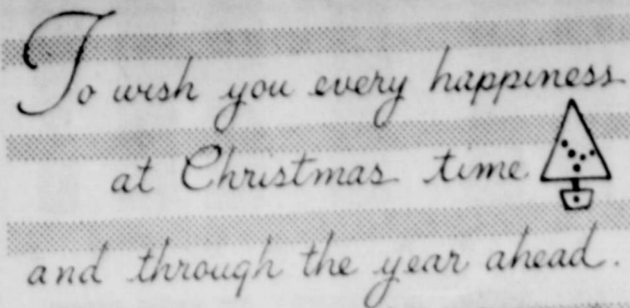 To wish you every happiness
at Christmas time
and through the year ahead.